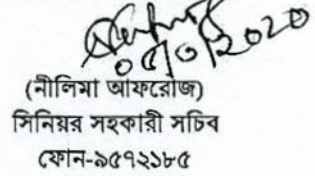 ০৫/০১/২০২০
(নীলিমা আফরোজ)
সিনিয়র সহকারী সচিব
ফোন-৯৫৭২১৮৫